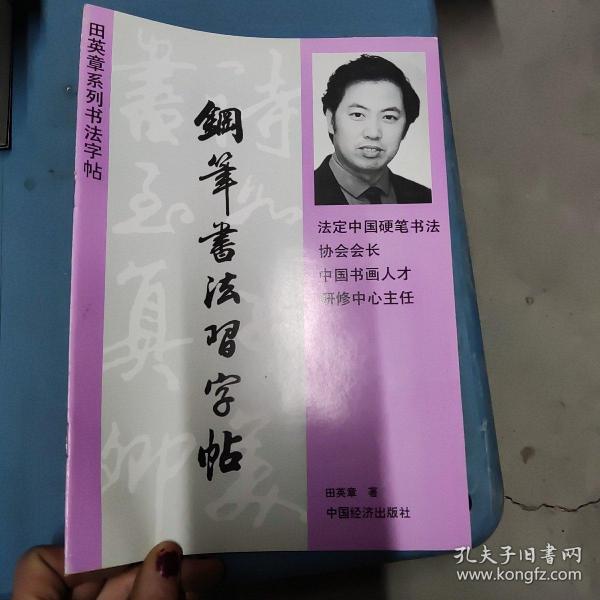 田英章系列书法字帖
鋼筆書法習字帖
法定中国硬笔书法
协会会长
中国书画人才
研修中心主任
田英章 著
中国经济出版社
孔夫子旧书网
www.kongfz.com